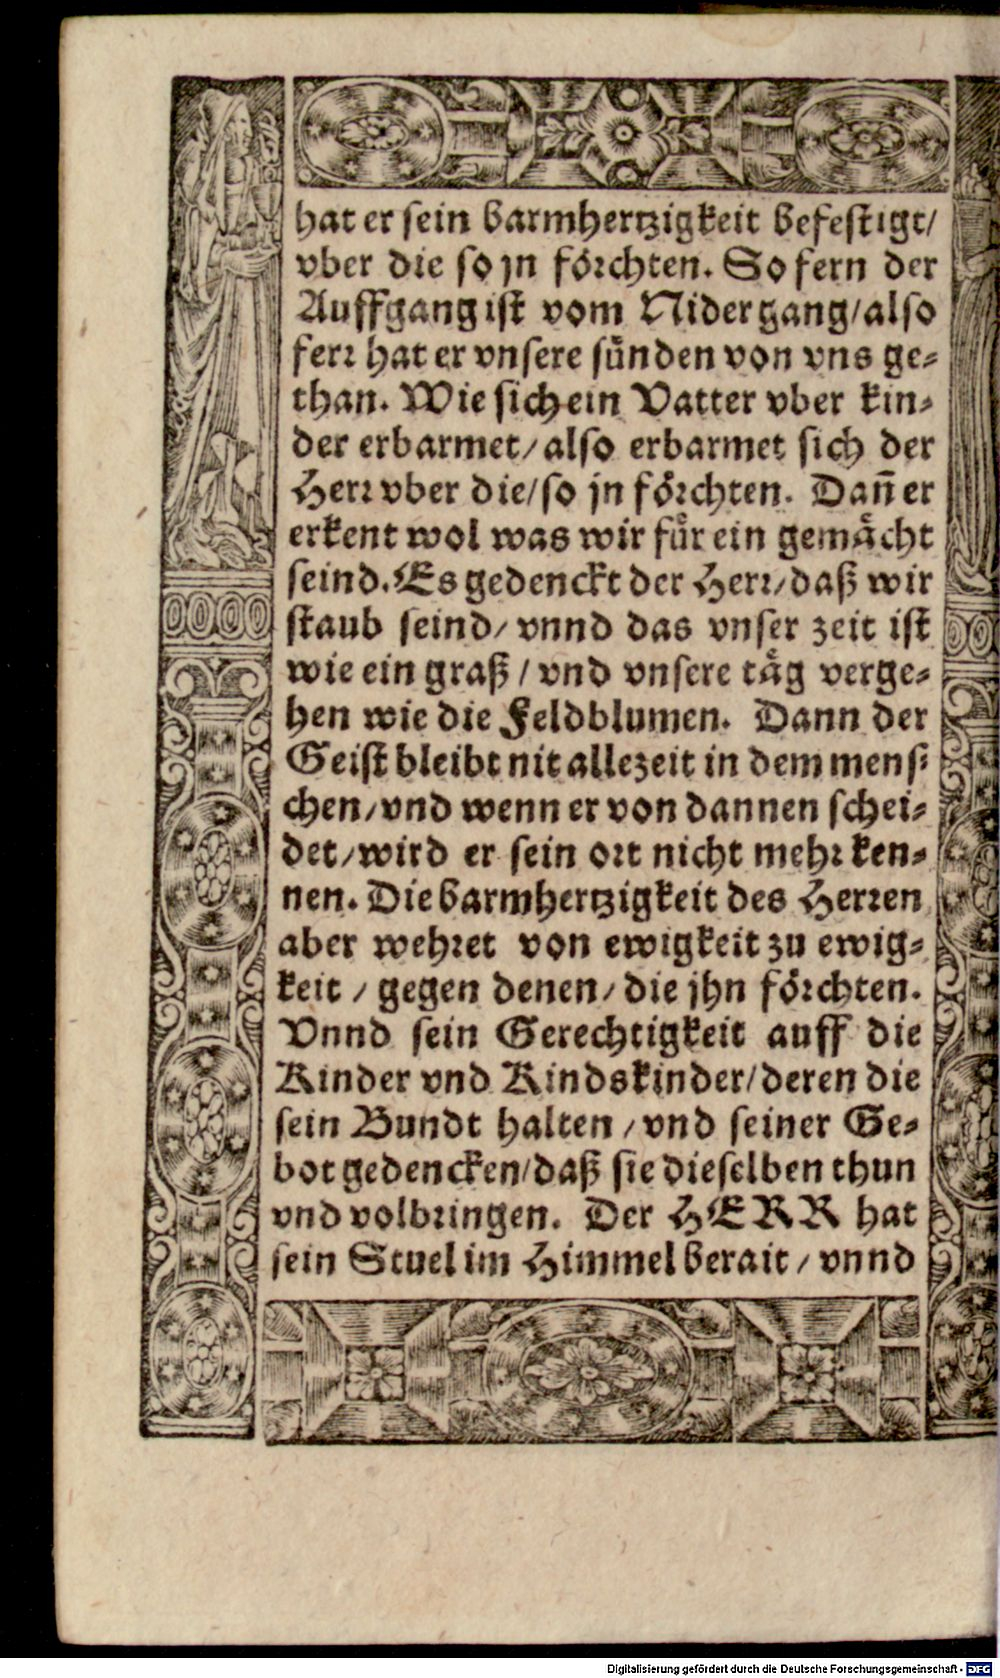 hat er sein barmhertzigkeit befestigt/
vber die so jn förchten. So fern der
Auffgang ist vom Nidergang/also
ferr hat er vnsere sünden von vns ge-
than. Wie sich ein Vatter vber kin-
der erbarmet/ also erbarmet sich der
Herr vber die/ so jn förchten. Dañ er
erkent wol was wir für ein gemächt
seind. Es gedenckt der Herr/ daß wir
staub seind/ vnnd das vnser zeit ist
wie ein graß / vnd vnsere täg verge-
hen wie die Feldblumen. Dann der
Geist bleibt nit allezeit in dem mens-
chen/ vnd wenn er von dannen schei-
det/ wird er sein ort nicht mehr ken-
nen. Die barmhertzigkeit des Herren
aber wehret von ewigkeit zu ewig-
keit / gegen denen/ die jhn förchten.
Vnnd sein Gerechtigkeit auff die
Kinder vnd Kindskinder/ deren die
sein Bundt halten / vnd seiner Ge-
bot gedencken/ daß sie dieselben thun
vnd volbringen. Der HERR hat
sein Stuel im Himmel berait / vnnd
Digitalisierung gefördert durch die Deutsche Forschungsgemeinschaft - DFG